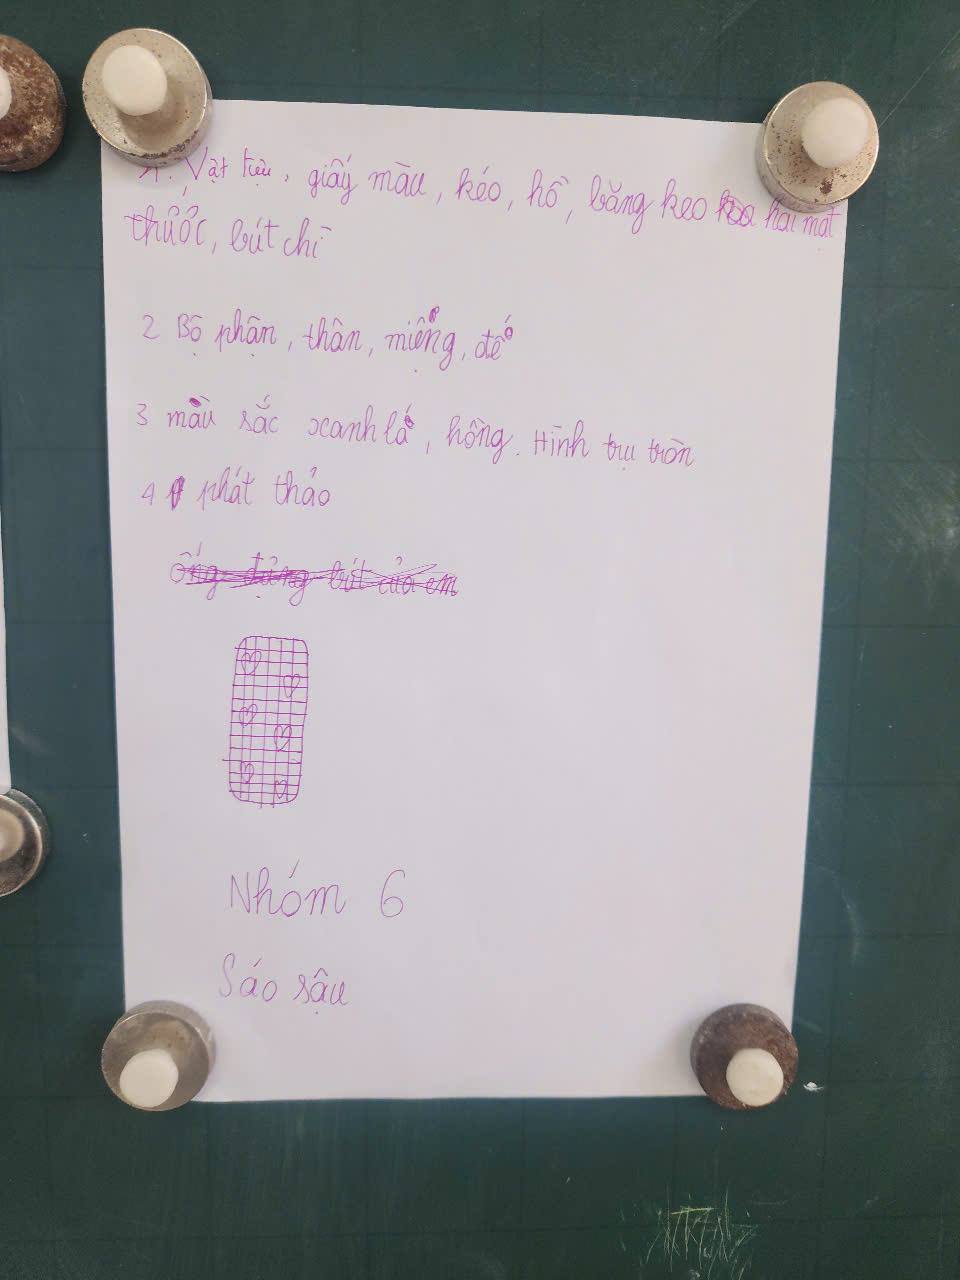 1. Vật liệu, giấy màu, kéo, hồ, băng keo hai mặt
thước, bút chì
2 Bộ phận, thân, miệng, đế
3 màu sắc xanh lá, hồng. Hình trụ tròn
4 phát thảo
ống đựng bút của em
Nhóm 6
Sáo sậu